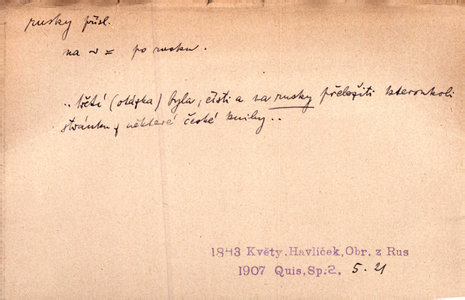 rusky přísl.
na ~ = po rusku.
„třetí (otázka) byla, čísti a na rusky přeložiti kteroukoli
stránku některé české knihy..
1843 Květy.Havlíček,Obr. z Rus
1907 Quis,Sp.2, 5.21